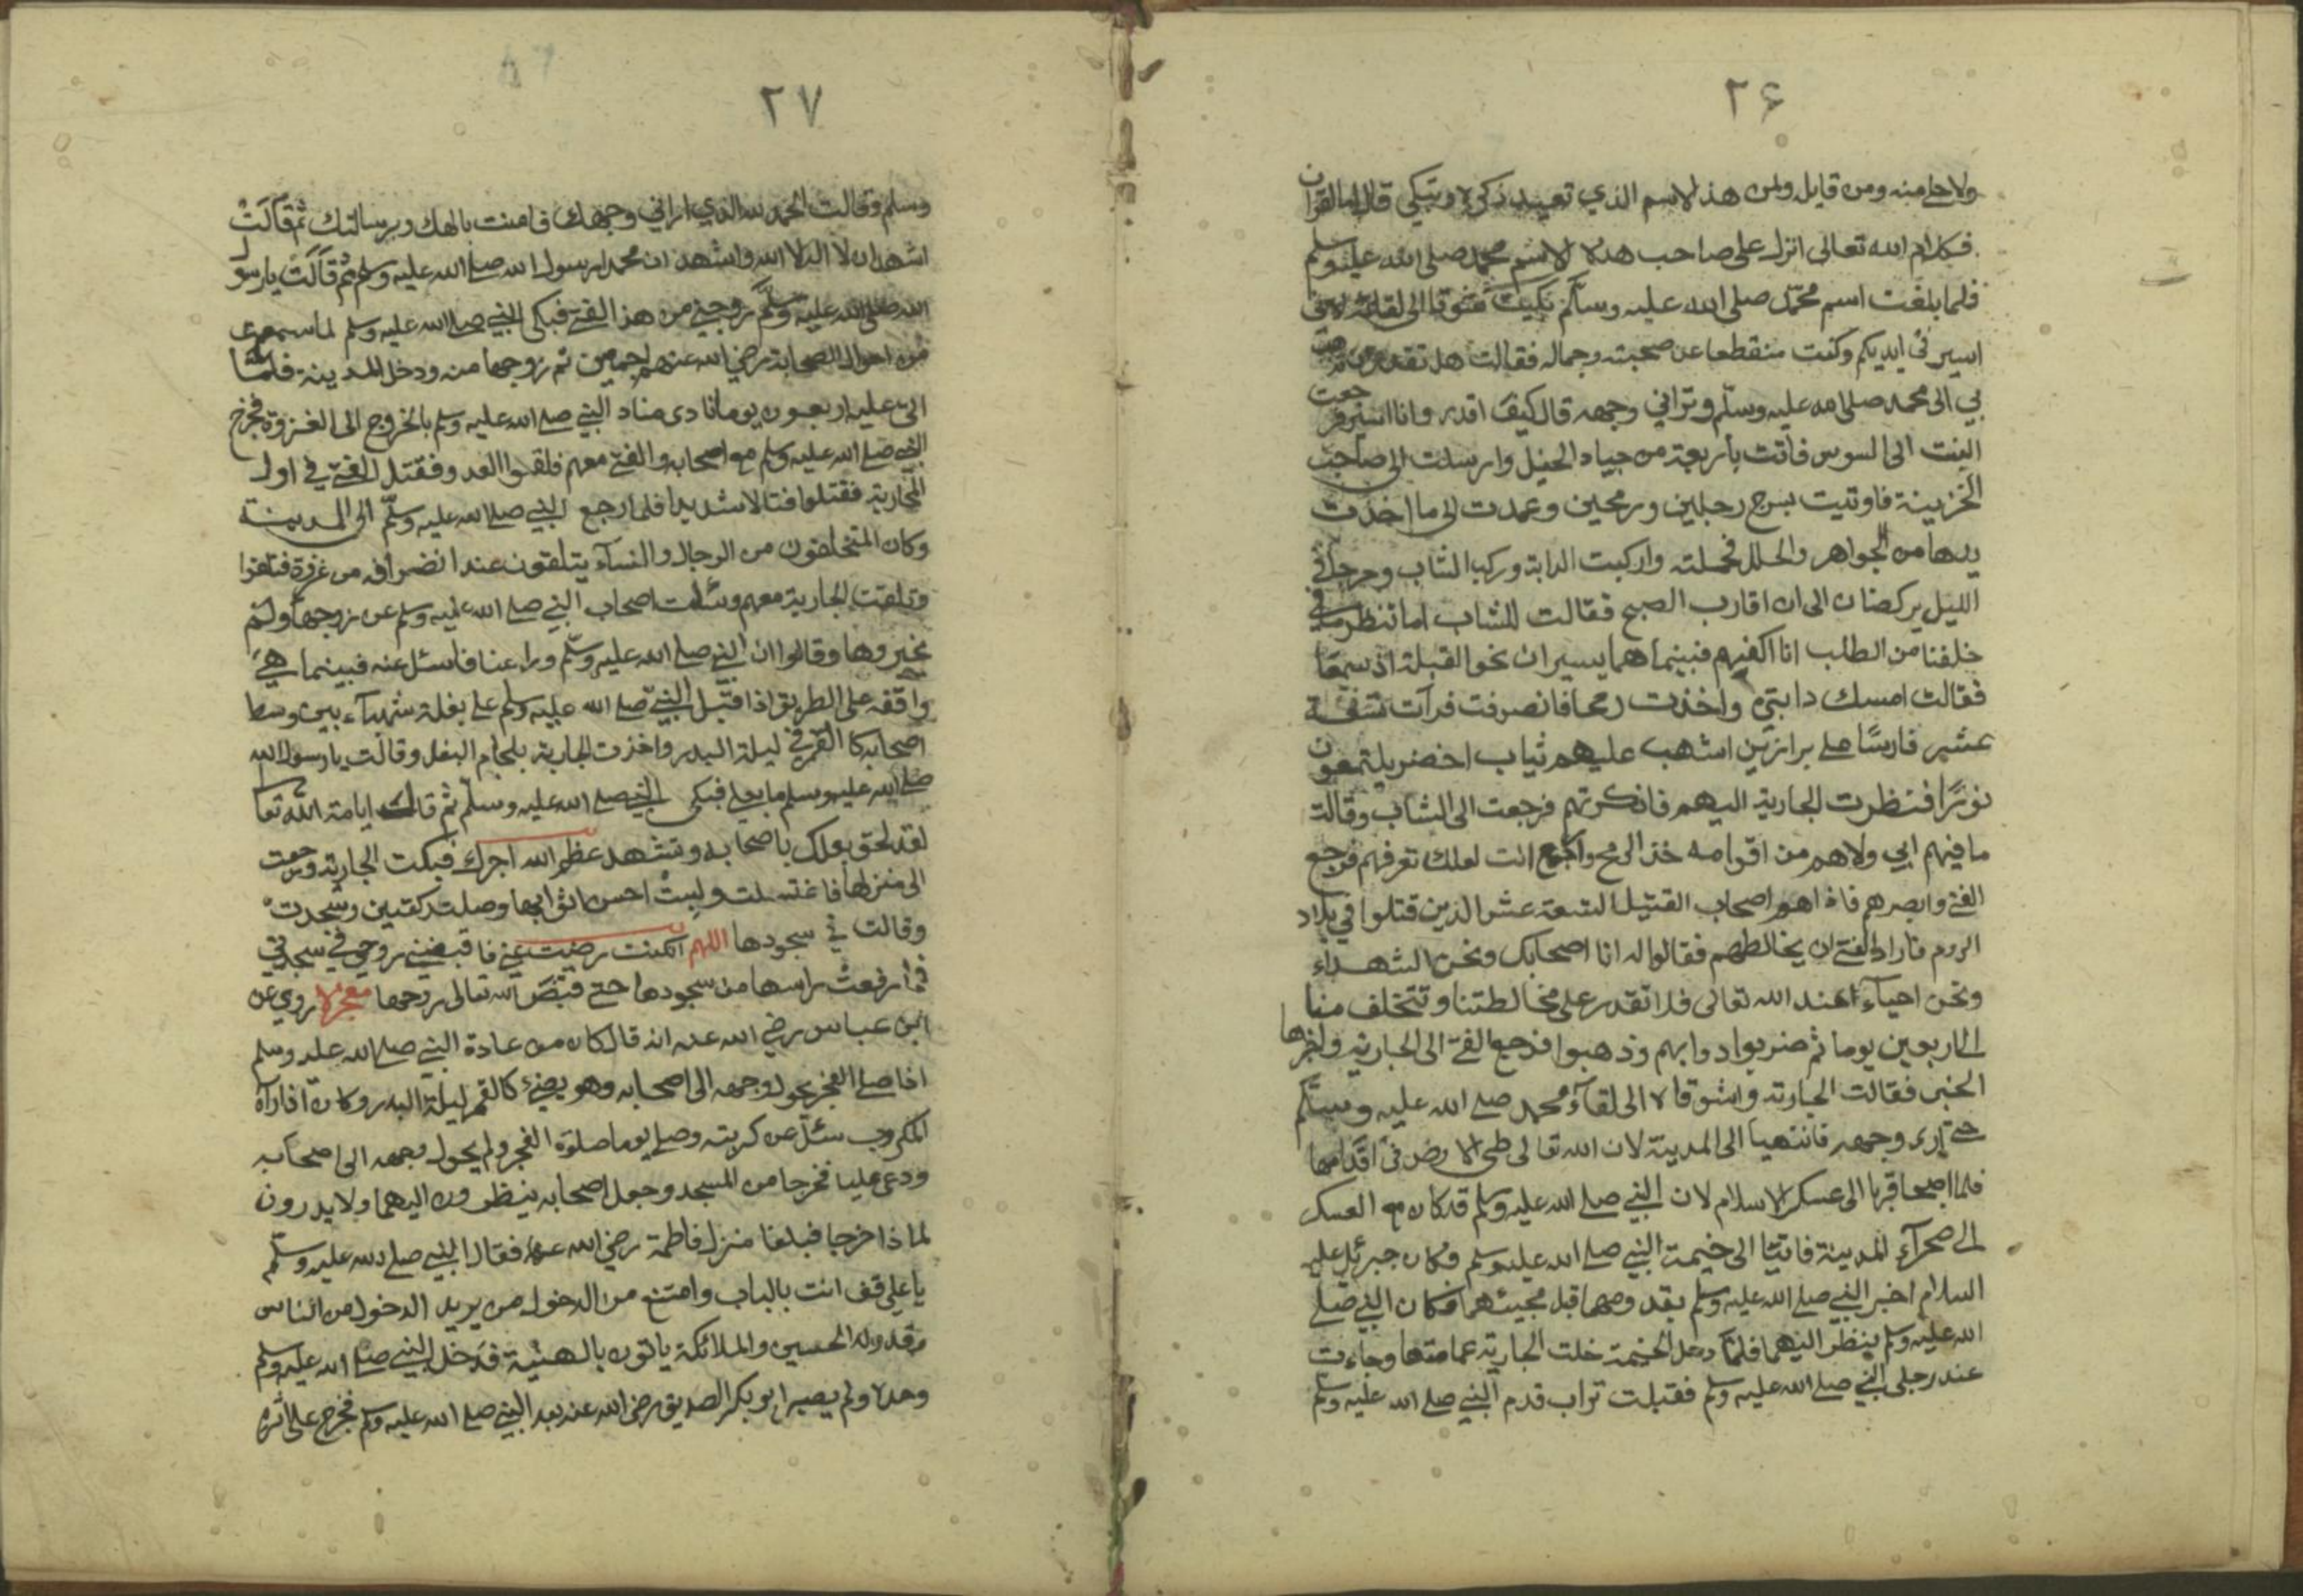 ٢۶
ولاحلي منه ومن قايل ولمن هذالاسم الذي تعيد ذكره وتبكي قال اما القران
فكلام الله تعالى انزل على صاحب هذا الاسم محمد صلى الله عليه وسلم
فلما بلغت اسم محمد صلى الله عليه وسلم بكيت شوقا الى لقائه لانى
اسير فى ايديكم وكنت منقطعا عن صحبته وجماله فقالت هل تقدر
بي الى محمد صلى الله عليه وسلم وتراني وجهه قال كيف اقدر وانا اسير فرجعت
البنت الى السوس فاتت باربعة من جياد الخيل وارسلت الى صاحب
الخزينة فاوتيت بسرج رجلين ورمحين وعمدت الى ما اخذت
يدها من الجواهر والحلل فحملته واركبت الدابة وركب الشاب وخرجا في
الليل يركضان الى ان اقارب الصبح فقالت للشاب اما تنظر من في
خلفنا من الطلب انا اكفيهم فبينما هما يسيران نحو القبلة اذ سمعا
فقالت امسك دابتي واخذت رمحا فانصرفت فرأت تسعة
عشر فارسًا على برازين اشهب عليهم ثياب اخضر يلتمعون
نورًا فنظرت الجارية اليهم فانكرتهم فرجعت الى الشاب وقالت
ما فيهم ابي ولاهم من اقوامه خذ الرمح وارجع انت لعلك تعرفهم فرجع
الفتى وابصرهم فاذاهم اصحاب القتيل التسعة عشر الذين قتلوا في بلاد
الروم فاراد الفتى ان يخالطهم فقالوا له انا اصحابك ونحن الشهداء
ونحن احياء عند الله تعالى فلا تقدر على مخالطتنا وتتخلف منا
الى اربعين يوما ثم ضربوا دوابهم وذهبوا فرجع الفتى الى الجارية واخبرها
الخبر فقالت الجارية واشوقاه الى لقاء محمد صلى الله عليه وسلم
حتى ارى وجهه فانتهيا الى المدينة لان الله تعالى طى الارض فى اقدامها
فلما اصبحا قربا الى عسكر الاسلام لان النبي صلى الله عليه وسلم قد كان مع العسكر
الى صحرآء المدينة فاتيا الى خيمة النبي صلى الله عليه وسلم وكان جبرئل عليه
السلام اخبر النبي صلى الله عليه وسلم بقدومهما قبل مجيئهما فكان النبي صلى
الله عليه وسلم ينظر اليهما فلما دخل الخيمة خلت الجارية عمامتها وجاءت
عند رجلى النبي صلى الله عليه وسلم فقبلت تراب قدم النبي صلى الله عليه وسلم
٢٧
وسلم وقالت الحمد لله الذي اراني وجهك فامنت بالهك وبرسالتك ثم قالت
اشهد ان لا اله الا الله واشهد ان محمدا رسول الله صلى الله عليه وسلم ثم قالت يارسول
الله صلى الله عليه وسلم زوجني من هذا الفتى فبكى النبي صلى الله عليه وسلم لما سمع
من احوال الصحابة رضي الله عنهم اجمعين ثم زوجها منه ودخل المدينة فلما
اتى عليه اربعون يوما نادى مناد النبي صلى الله عليه وسلم بالخروج الى الغزوة فخرج
النبي صلى الله عليه وسلم مع اصحابه والفتى معهم فلقوا العدو فقتل الفتى في اول
المحاربة فقتلوا قتالا شديدا فلما رجع النبي صلى الله عليه وسلم الى المدينة
وكان المتخلفون من الرجال والنسآء يتلقون عند انصرافه من غزوة فتلقوا
وتلقت الجارية معهم وسئلت اصحاب النبي صلى الله عليه وسلم عن زوجها ولم
يخبروها وقالوا ان النبي صلى الله عليه وسلم وراءنا فاسئل عنه فبينما هي
واقفه على الطريق اذا قبل النبي صلى الله عليه وسلم على بغلة شهبآء بين وسط
اصحابه كا القمر في ليلة البدر واخذت الجارية بلجام البغل وقالت يا رسول الله
صلى الله عليه وسلم ما بعلي فبكى النبي صلى الله عليه وسلم ثم قال ايا امة الله تعا
لقد لحق بعلك باصحابه وتشهد عظم الله اجرك فبكت الجارية ورجعت
الى منزلها فاغتسلت ولبست احسن اثوابها وصلت ركعتين وسجدت
وقالت في سجودها اللهم ان كنت رضيت عني فاقبضني روحي في سجدتي
فما رفعت راسها من سجودها حتى قبض الله تعالى روحها معجزه روي عن
ابن عباس رضي الله عنه انه قال كان من عادة النبي صلى الله عليه وسلم
اذا صلى الفجر يحول وجهه الى اصحابه وهو يضئ كالقمر ليلة البدر وكان اذا رآه
المكروب سئل عن كربته وصلى يوما صلوة الفجر ولم يحول وجهه الى اصحابه
ودعى عليا فخرجا من المسجد وجعل اصحابه ينظرون اليهما ولا يدرون
لما ذا خرجا فبلغا منزل فاطمة رضي الله عنها فقال النبي صلى الله عليه وسلم
يا علي قف انت بالباب وامتنع من الدخول من يريد الدخول من الناس
وقد ولد الحسين والملائكة ياتون بالتهنية فدخل النبي صلى الله عليه وسلم
وحده ولم يصبر ابو بكر الصديق رضى الله عنه بعد النبي صلى الله عليه وسلم فخرج على اثره